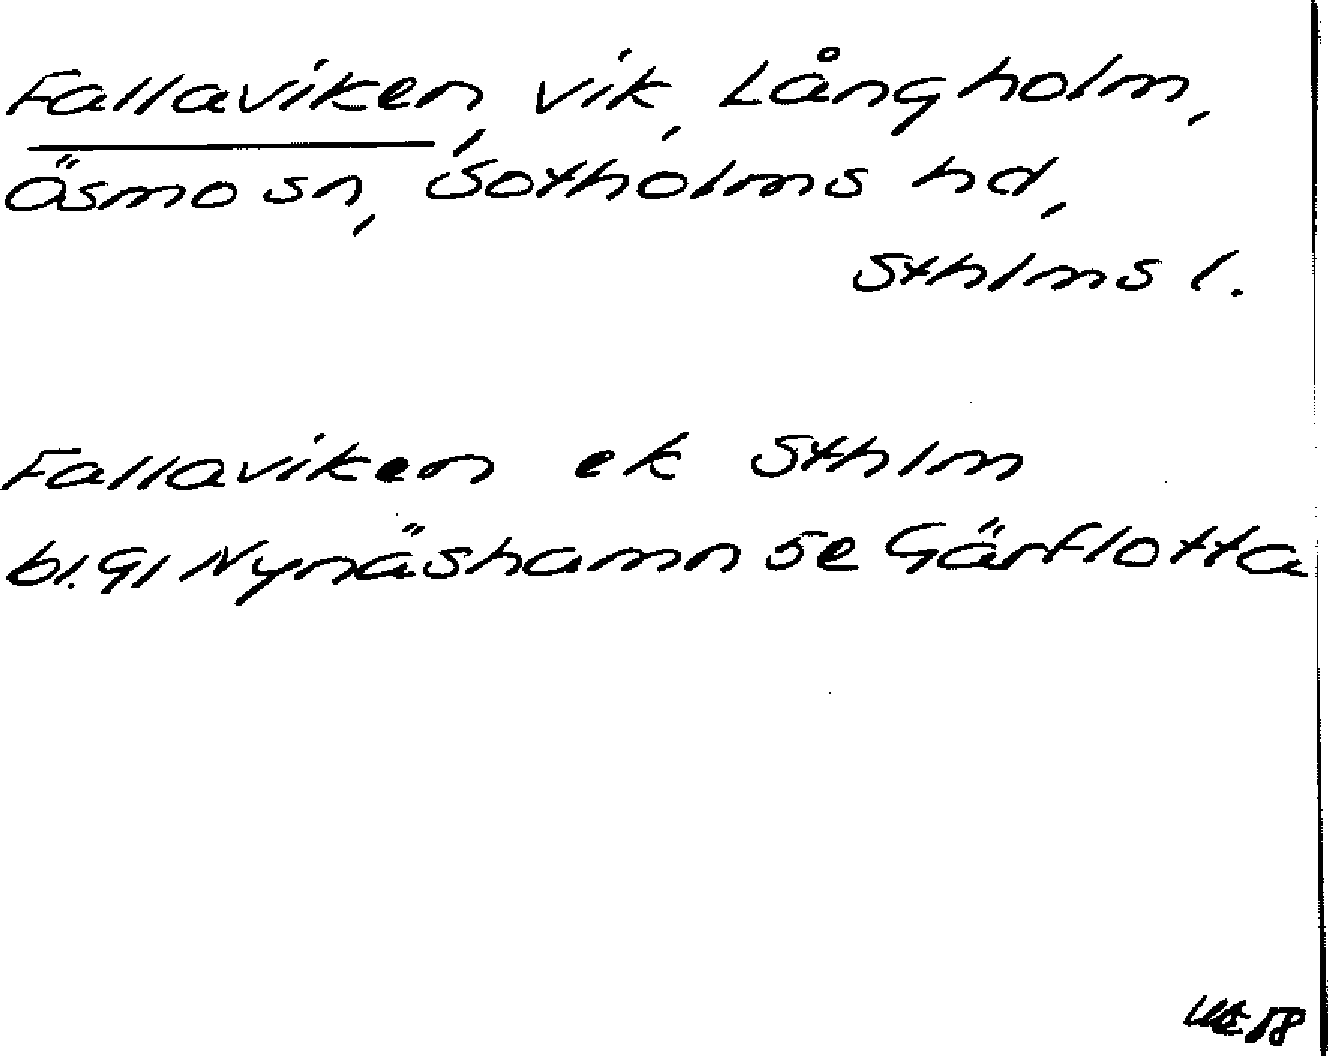 Fallaviken, vik, Långholm,
Ösmo sn, Sotholms hd,
Sthlms l.
Fallaviken ek Sthlm
bl. 91 Nynäshamn se Gärflotta